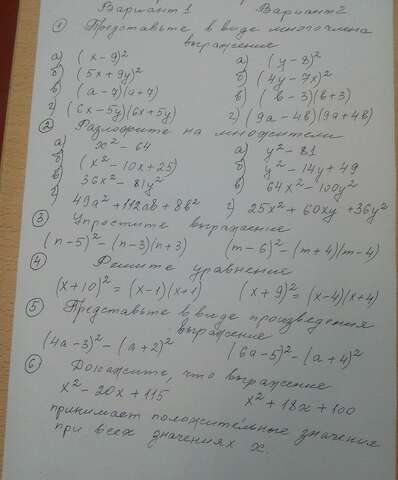 Вариант 1 Вариант 2
① Представьте в виде многочлена
выражение
а) (x-9)² а) (y-8)²
б) (5x+9y)² б) (4y-7x)²
в) (a-7)(a+7) в) (b-3)(b+3)
г) (6x-5y)(6x+5y) г) (9a-4b)(9a+4b)
② Разложите на множители
а) x²-64 а) y²-81
б) (x²-10x+25) б) y²-14y+49
в) 36x²-81y² в) 64x²-100y²
г) 49a²+112ab+8b² г) 25x²+60xy+36y²
③ Упростите выражение
(n-5)²-(n-3)(n+3) (m-6)²-(m+4)(m-4)
④ Решите уравнение
(x+10)²=(x-1)(x+1) (x+9)²=(x-4)(x+4)
⑤ Представьте в виде произведения
выражение
(4a-3)²-(a+2)² (6a-5)²-(a+4)²
⑥ Докажите, что выражение
x²-20x+115 x²+18x+100
принимает положительные значения
при всех значениях x.